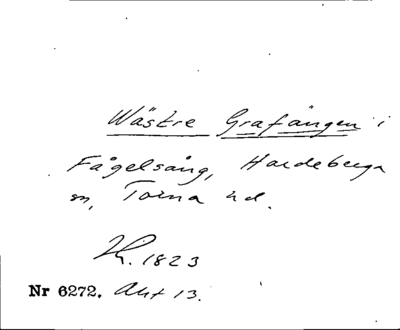 Wästre Grafängen i
Fågelsång, Hardeberga
sn, Torna hd.
1823
Nr 6272. Akt 13.